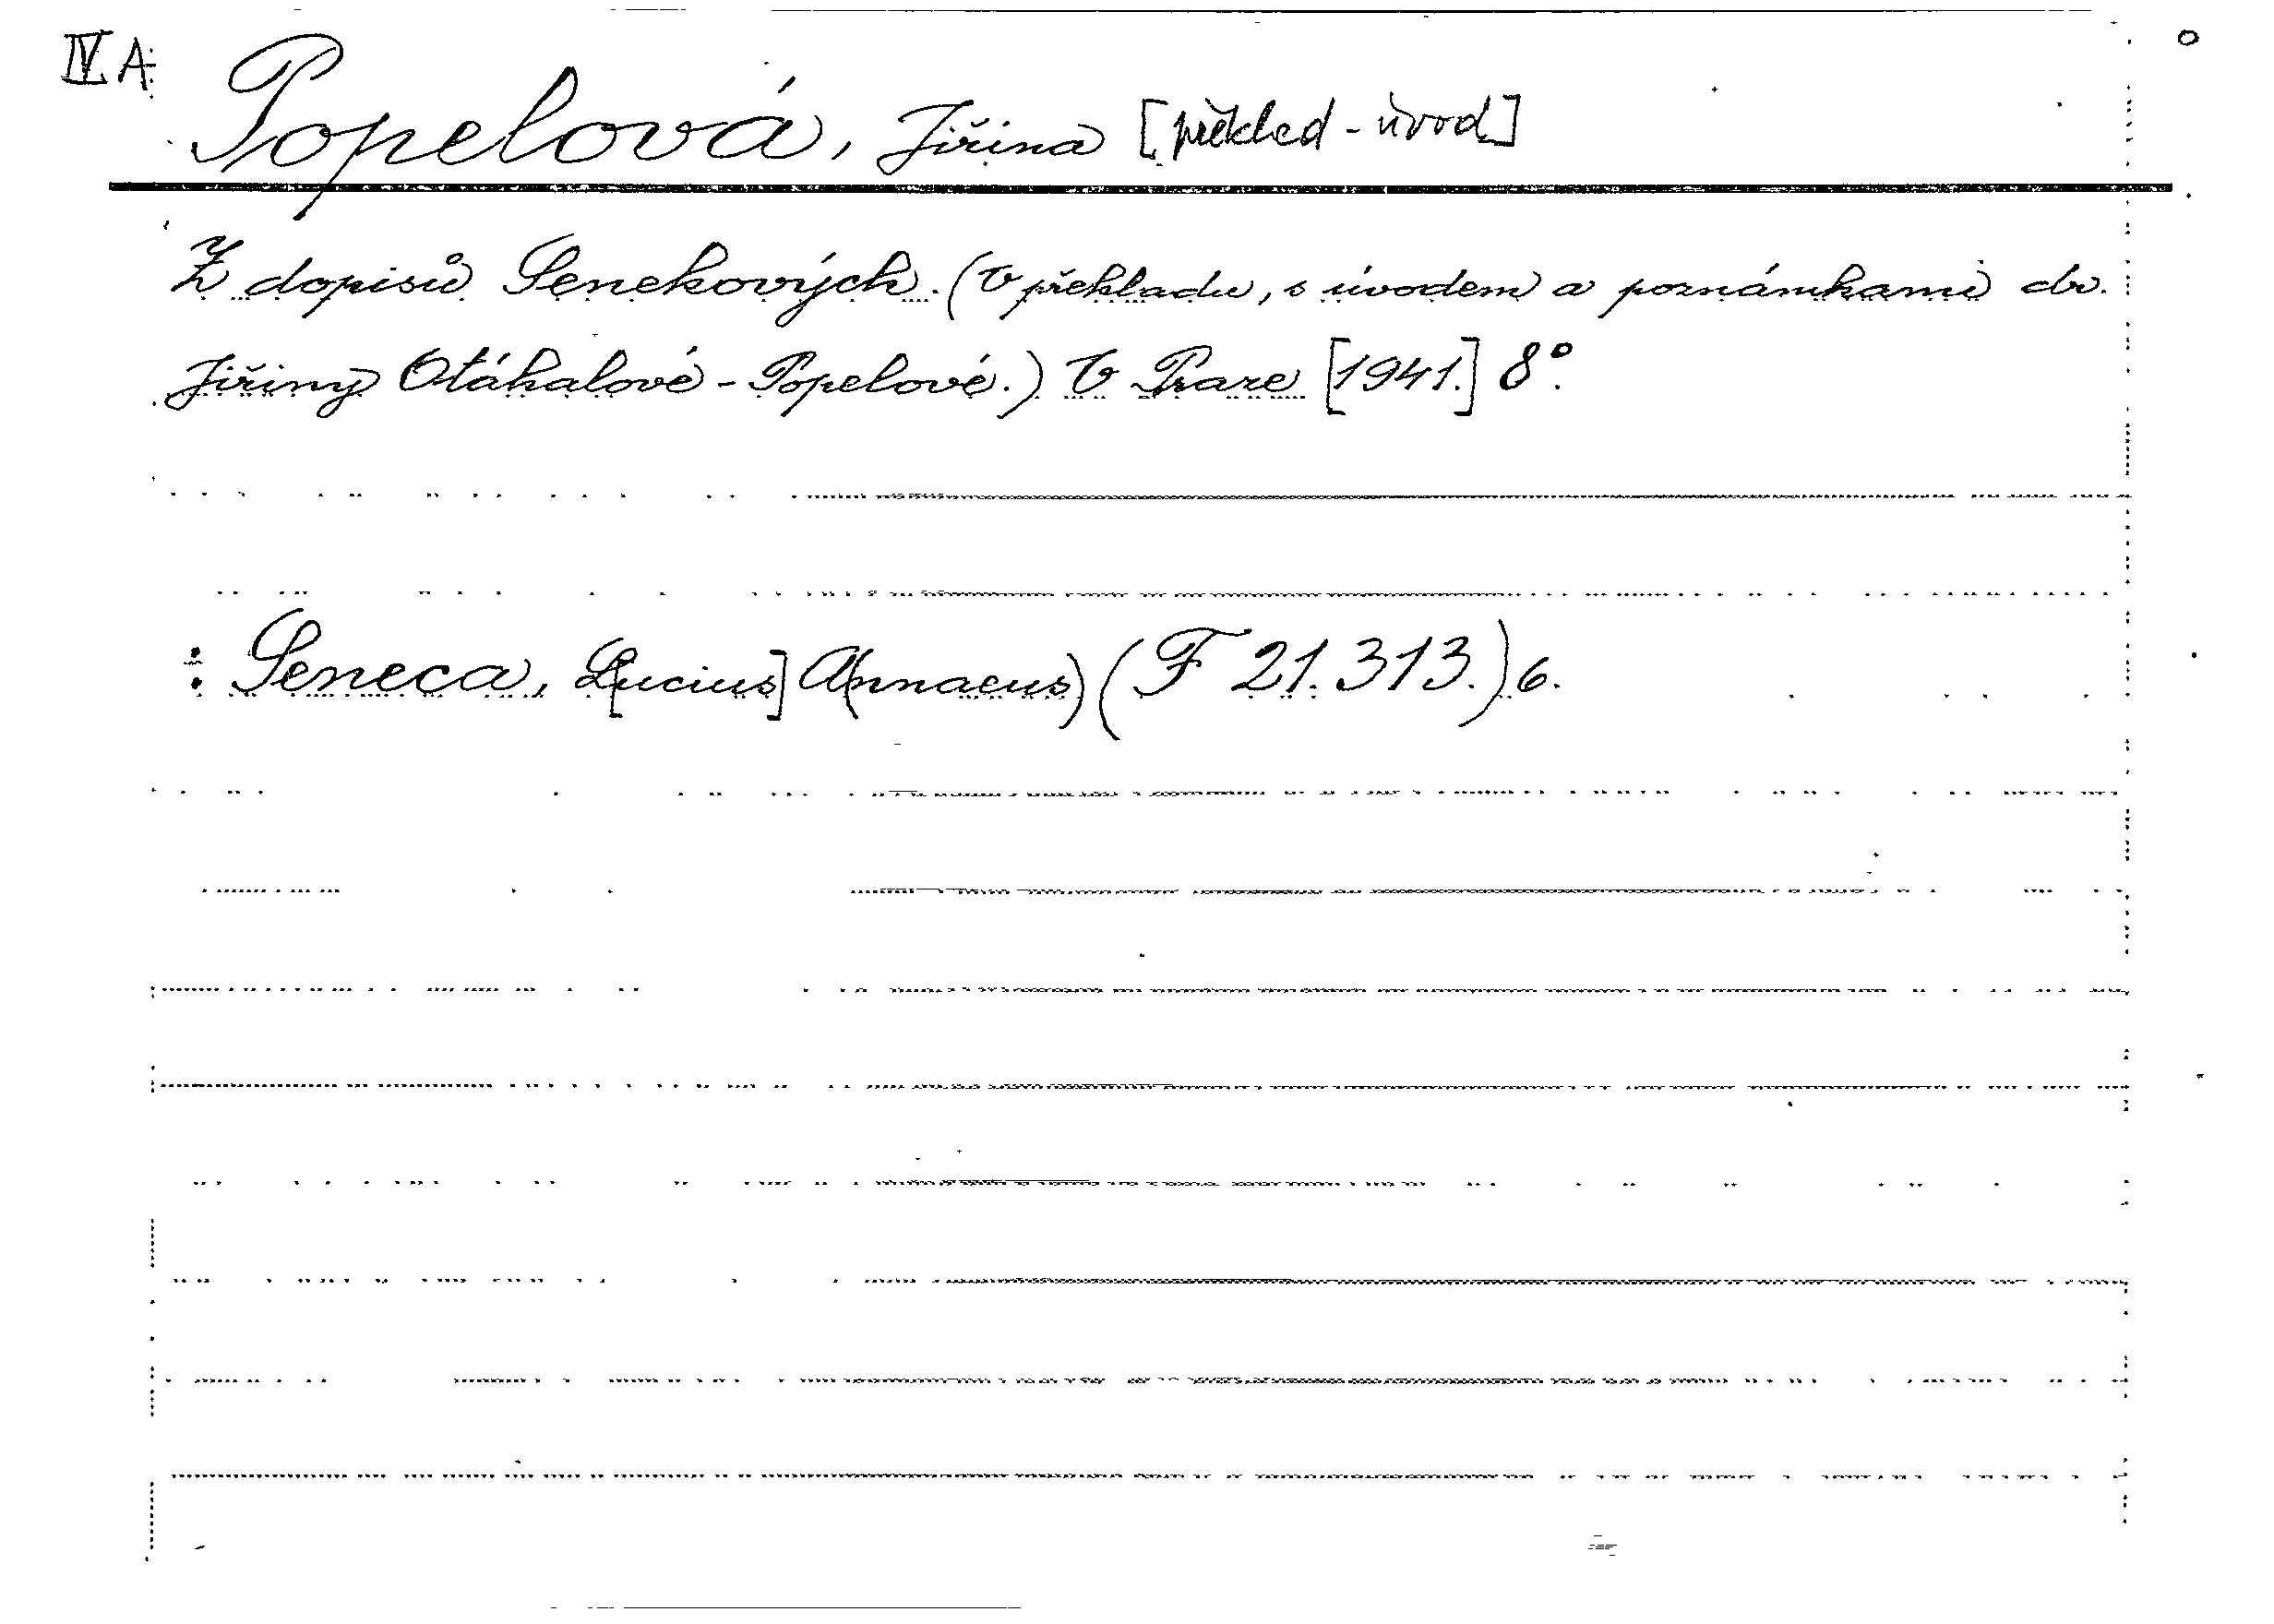 IV A
Popelová, Jiřina [překlad - úvod]
Z dopisů Senekových. (V překladu, s úvodem a poznámkami dr.
Jiřiny Otáhalové-Popelové.) V Praze [1941.] 8°.
: Seneca, L[ucius] A(nnaeus) (F 21.313.) 6.